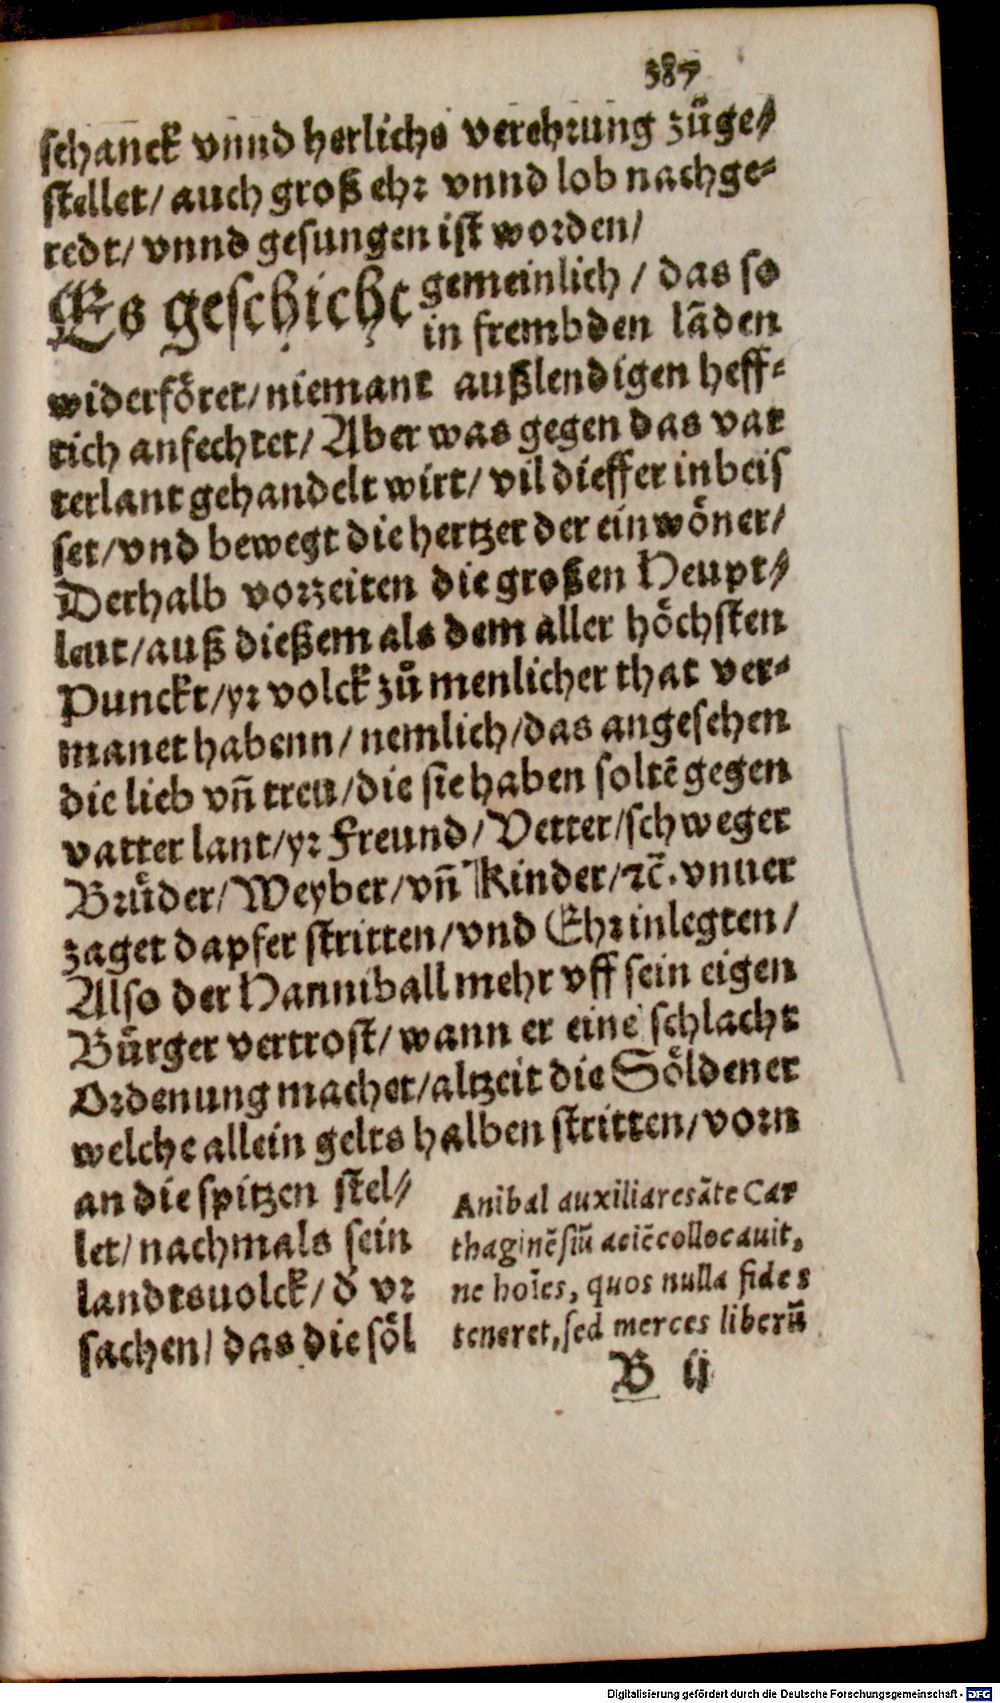 387
schanck vnnd herliche verehrung zůge⸗
stellet/ auch groß ehr vnnd lob nachge⸗
redt/ vnnd gesungen ist worden/
Es geschicht gemeinlich / das so
in frembden lãden
widerföret/ niemant außlendigen heff⸗
tich anfechtet/ Aber was gegen das vat
terlant gehandelt wirt/ vil dieffer inbeis
set/ vnd bewegt die hertzer der einwöner/
Derhalb vorzeiten die großen Heupt⸗
leut/ auß dießem als dem aller höchsten
Punckt/ yr volck zů menlicher that ver⸗
manet habenn/ nemlich/ das angesehen
die lieb vñ treu/ die sie haben soltẽ gegen
vatter lant/ yr Freund/ Vetter/ schweger
Brůder/ Weyber/ vñ Kinder/ ꝛc̃. vnuer
zaget dapfer stritten/ vnd Ehr inlegten/
Also der Hanniball mehr vff sein eigen
Bürger vertrost/ wann er eine schlacht
Ordenung machet/ altzeit die Söldener
welche allein gelts halben stritten/ vorn
an die spitzen stel⸗
let/ nachmals sein
landtsuolck/ d̃ vr
sachen/ das die söl
Anibal auxiliares ãte Car
thaginẽsiũ aciẽ collocauit,
ne hoĩes, quos nulla fides
teneret, sed merces liberũ
B ij
Digitalisierung gefördert durch die Deutsche Forschungsgemeinschaft - DFG